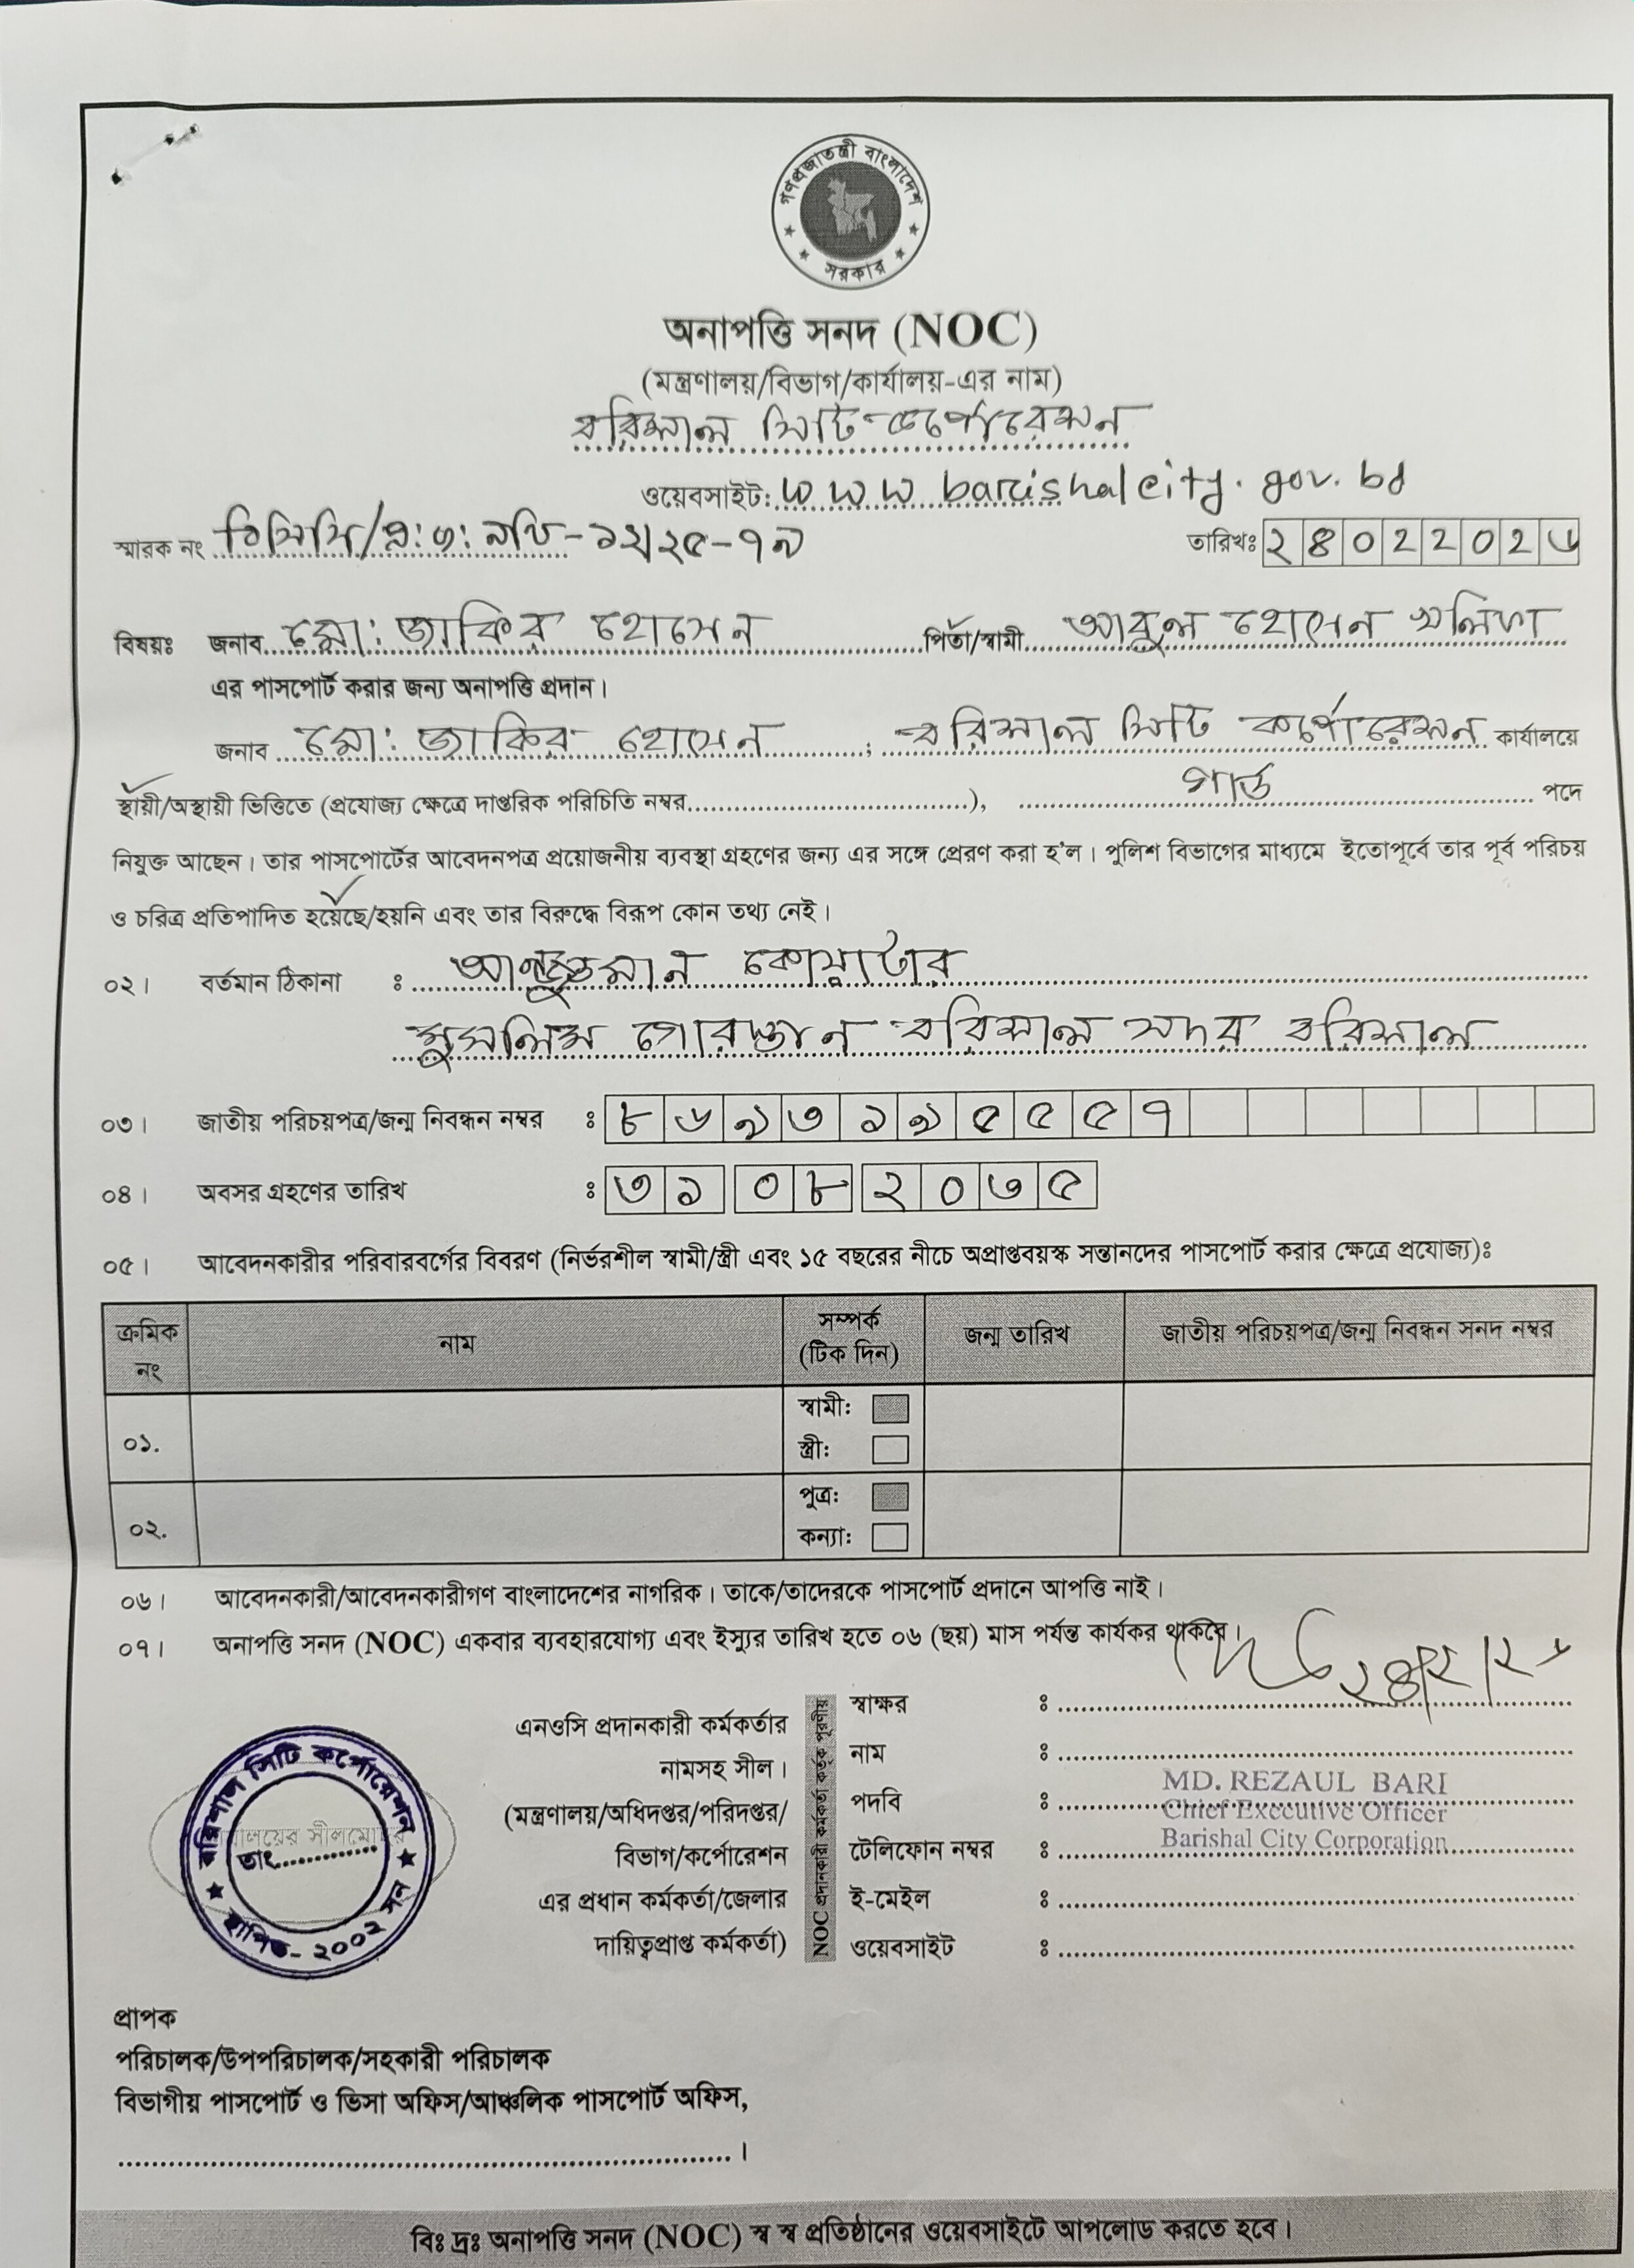 গণপ্রজাতন্ত্রী বাংলাদেশ
সরকার
অনাপত্তি সনদ (NOC)
(মন্ত্রণালয়/বিভাগ/কার্যালয়-এর নাম)
বরিশাল সিটি কর্পোরেশন
ওয়েবসাইট: www.barishalcity.gov.bd
স্মারক নং বিসিসি/প্র:শা: নথি-১২/২৫-৭৯ তারিখঃ ২৪০২২০২৬
বিষয়ঃ জনাব মো: জাকির হোসেন পিতা/স্বামী আবুল হোসেন খলিফা
এর পাসপোর্ট করার জন্য অনাপত্তি প্রদান।
জনাব মো: জাকির হোসেন, বরিশাল সিটি কর্পোরেশন কার্যালয়ে
স্থায়ী/অস্থায়ী ভিত্তিতে (প্রযোজ্য ক্ষেত্রে দাপ্তরিক পরিচিতি নম্বর..............................), গার্ড পদে
নিযুক্ত আছেন। তার পাসপোর্টের আবেদনপত্র প্রয়োজনীয় ব্যবস্থা গ্রহণের জন্য এর সঙ্গে প্রেরণ করা হ'ল। পুলিশ বিভাগের মাধ্যমে ইতোপূর্বে তার পূর্ব পরিচয়
ও চরিত্র প্রতিপাদিত হয়েছে/হয়নি এবং তার বিরুদ্ধে বিরূপ কোন তথ্য নেই।
০২। বর্তমান ঠিকানা : কোয়াটার
মুসলিম গোরস্তান বরিশাল সদর বরিশাল
০৩। জাতীয় পরিচয়পত্র/জন্ম নিবন্ধন নম্বর : ৮৬৯৩১৯৫৫৫৭
০৪। অবসর গ্রহণের তারিখ : ৩১ ০৮ ২০৩৫
০৫। আবেদনকারীর পরিবারবর্গের বিবরণ (নির্ভরশীল স্বামী/স্ত্রী এবং ১৫ বছরের নীচে অপ্রাপ্তবয়স্ক সন্তানদের পাসপোর্ট করার ক্ষেত্রে প্রযোজ্য)ঃ
ক্রমিক নং নাম সম্পর্ক (টিক দিন) জন্ম তারিখ জাতীয় পরিচয়পত্র/জন্ম নিবন্ধন সনদ নম্বর
০১. স্বামী:
স্ত্রী:
০২. পুত্র:
কন্যা:
০৬। আবেদনকারী/আবেদনকারীগণ বাংলাদেশের নাগরিক। তাকে/তাদেরকে পাসপোর্ট প্রদানে আপত্তি নাই।
০৭। অনাপত্তি সনদ (NOC) একবার ব্যবহারযোগ্য এবং ইস্যুর তারিখ হতে ০৬ (ছয়) মাস পর্যন্ত কার্যকর থাকবে।
২৪/২/২৬
বরিশাল সিটি কর্পোরেশন
তাং............
স্থাপিত- ২০০২ সন
এনওসি প্রদানকারী কর্মকর্তার
নামসহ সীল।
(মন্ত্রণালয়/অধিদপ্তর/পরিদপ্তর/
বিভাগ/কর্পোরেশন
এর প্রধান কর্মকর্তা/জেলার
দায়িত্বপ্রাপ্ত কর্মকর্তা)
NOC প্রদানকারী কর্মকর্তা কর্তৃক পূরণীয়
স্বাক্ষর :
নাম :
পদবি :
টেলিফোন নম্বর :
ই-মেইল :
ওয়েবসাইট :
MD. REZAUL BARI
Chief Executive Officer
Barishal City Corporation
প্রাপক
পরিচালক/উপপরিচালক/সহকারী পরিচালক
বিভাগীয় পাসপোর্ট ও ভিসা অফিস/আঞ্চলিক পাসপোর্ট অফিস,
..............................................................।
বিঃ দ্রঃ অনাপত্তি সনদ (NOC) স্ব স্ব প্রতিষ্ঠানের ওয়েবসাইটে আপলোড করতে হবে।